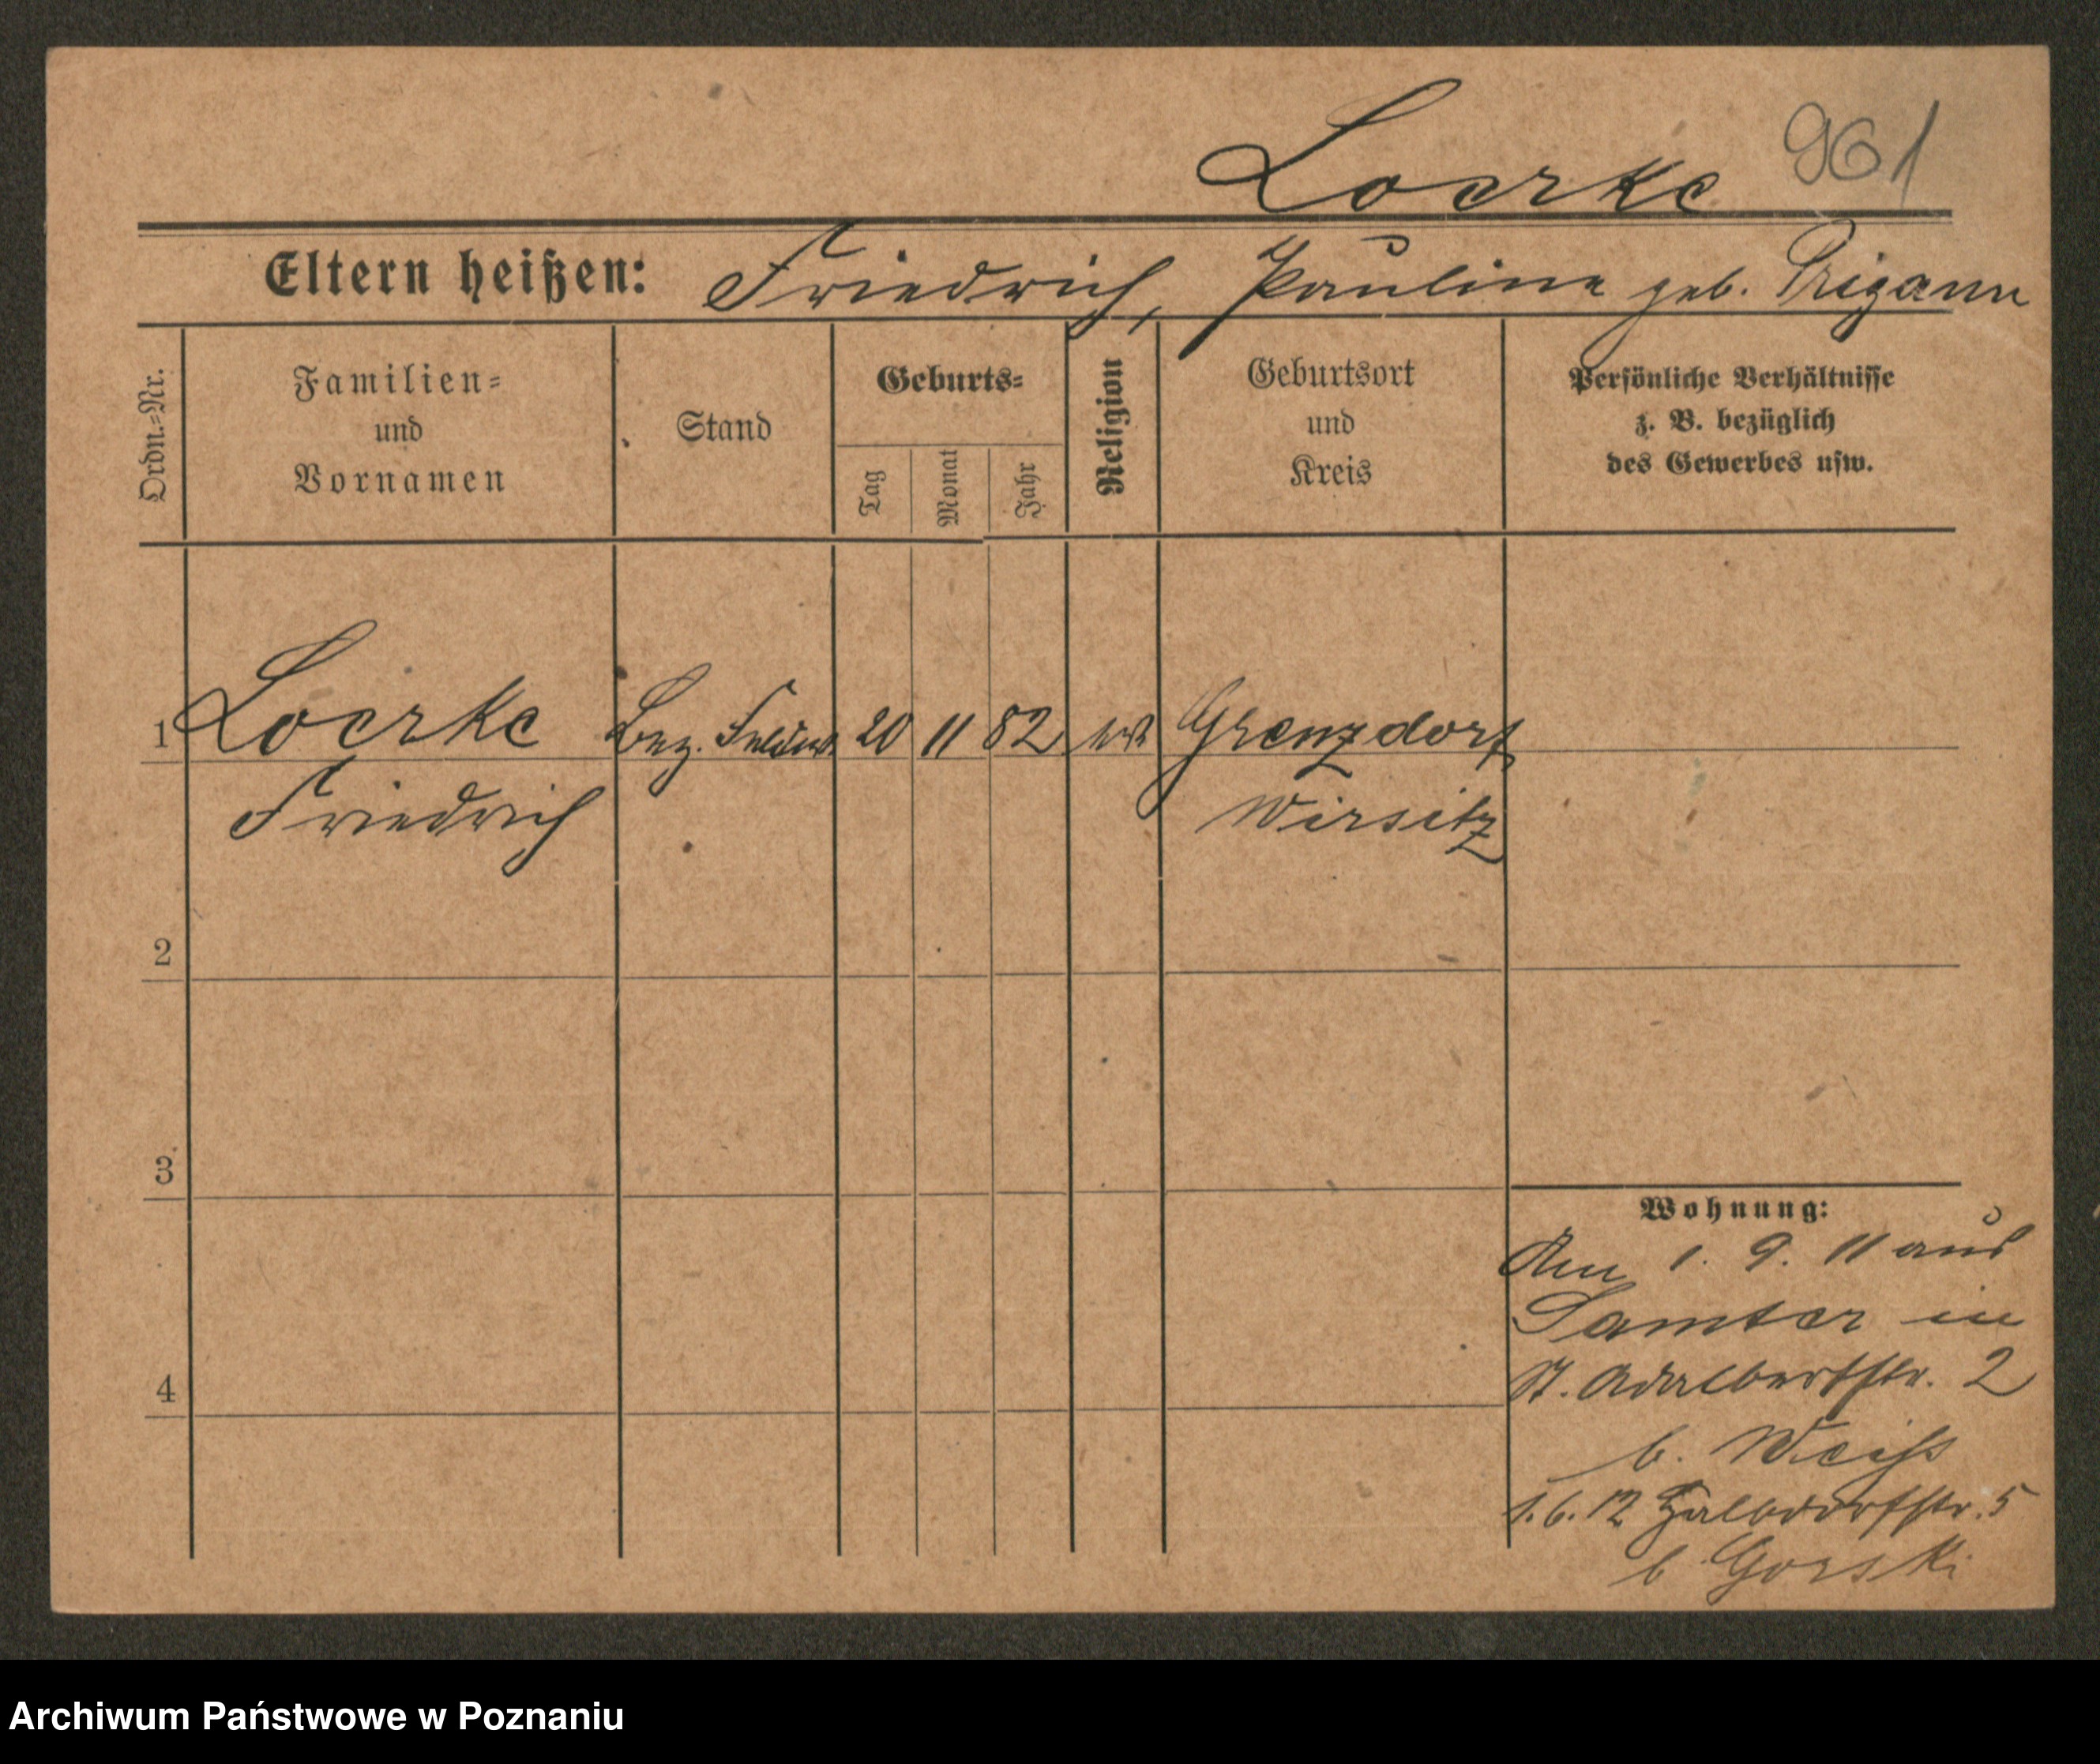 Loerke 961
Eltern heißen: Friedrich, Pauline geb. Prigann
Ordn.=Nr.
Familien=
und
Vornamen
Stand
Geburts=
Tag
Monat
Jahr
Religion
Geburtsort
und
Kreis
Persönliche Verhältnisse
z. B. bezüglich
des Gewerbes usw.
1 Loerke Bez. Feldw. 20 11 82 Grenzdorf
Friedrich Wirsitz
2
3
Wohnung:
Am 1. 9. 11 aus
Samter in
4 St. Adalbertstr. 2
b. Weiss
1.6.12 Halbdorfstr. 5
b Gorski
Archiwum Państwowe w Poznaniu